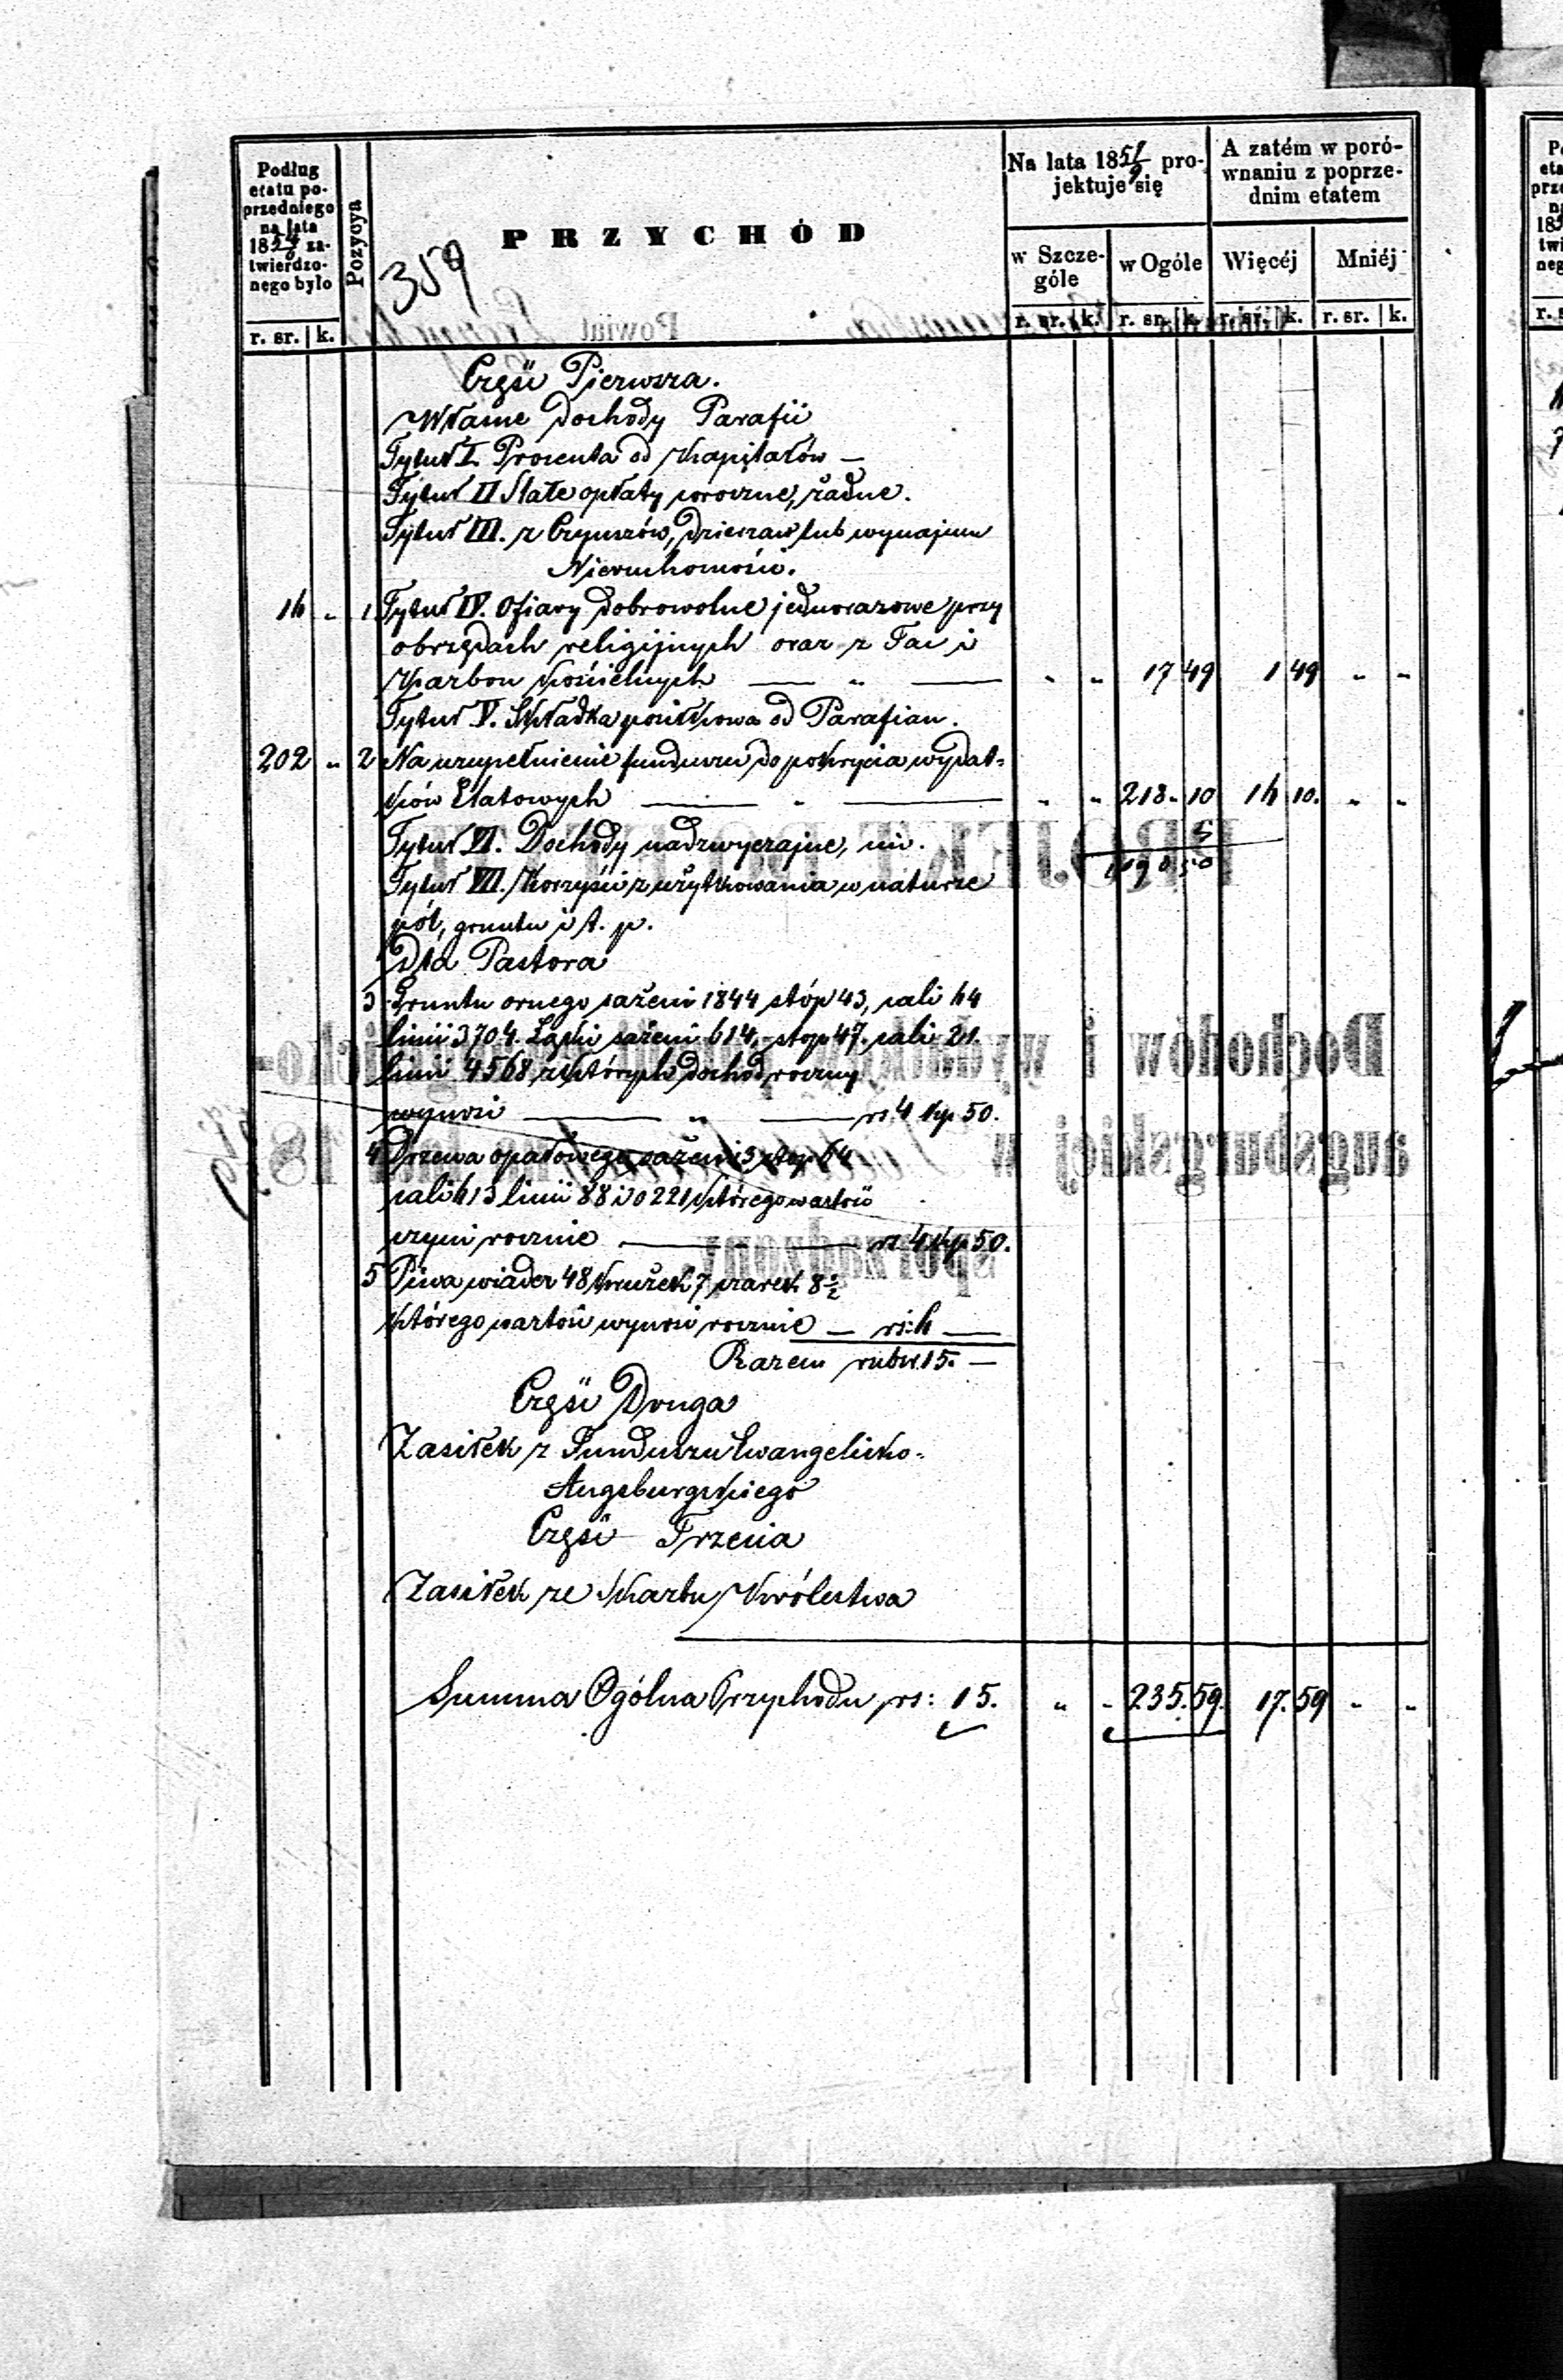 Podług
etatu po-
przedniego
na lata
za-
twierdzo-
nego było
r. sr. k.
Pozycya
359
PRZYCHÓD
Na lata 18 pro-
jektuje się
w Szcze-
góle
w Ogóle
r. sr. k. r. sr. k.
A zatém w poró-
wnaniu z poprze-
dnim etatem
Więcéj Mniéj
r. sr. k. r. sr. k.
Część Pierwsza.
Własne Dochody Parafii
Tytuł I. Procenta od Kapitałów —
Tytuł II Stałe opłaty coroczne, żadne.
Tytuł III. z Czynszów, Dzierzaw lub wynajmu
Nieruchomości.
16 " 1 Tytuł IV. Ofiary dobrowolne jednorazowe przy
obrzędach religijnych oraz z Tac i
Skarbon Kościelnych — " — " " 17 49 1 49 " "
Tytuł V. Składka posiłkowa od Parafian.
202 " 2 Na uzupełnienie funduszu do pokrycia wydat-
ków Etatowych — " — " " 218 10 16 10. " "
Tytuł VI. Dochody nadzwyczajne, nic.
Tytuł VII. Korzyści z użytkowania w naturze
pól, gruntu i t. p.
Dla Pastora
3 Gruntu ornego sażeni 1844 stóp 43, cali 64
linii 3704. Łąki sażeni 614, stop 47. cali 21.
linii 4568, z których dochod roczny
wynosi — " — rs. 4 kp 50.
4 Drzewa opałowego sażeni 3 stop 64
cali 613 linii 88 którego wartość
czyni rocznie — rs. 4 kp 50.
5 Piwa wiader 48 krużek 7 czarek 8½
którego wartość wynosi rocznie — rs: 6 —
Razem rubsr. 15. —
Część Druga
Zasiłek z Funduszu Ewangelicko-
Augsburgskiego
Część Trzecia
Zasiłek ze Skarbu Królestwa
Summa Ogólna Przychodu rs: 15. " " 235. 59. 17. 59 " "